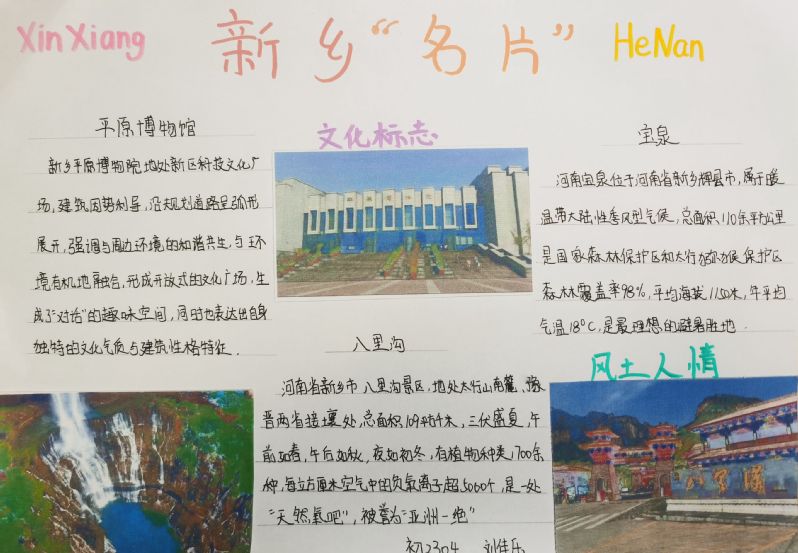 XinXiang
新乡“名片”
HeNan
平原博物馆
新乡平原博物院地处新区科技文化广
场,建筑因势利导,沿规划道路呈弧形
展开,强调与周边环境的和谐共生,与环
境有机地融合,形成开放式的文化广场,生
成了“对话”的趣味空间,同时也表达出自身
独特的文化气质与建筑性格特征.
文化标志
宝泉
河南宝泉位于河南省新乡辉县市,属于暖
温带大陆性季风型气候,总面积110余平方公里
是国家森林保护区和太行猕猴保护区
森林覆盖率98%,平均海拔1150米,年平均
气温18°C,是最理想的避暑胜地.
八里沟
河南省新乡市八里沟景区,地处太行山南麓、豫
晋两省接壤处,总面积109平方千米,三伏盛夏,午
前如春,午后如秋,夜如初冬,有植物种类1700余
种,每立方厘米空气中的负氧离子超5000个,是一处
“天然氧吧”,被誉为“亚洲一绝”
初2304 刘佳乐
风土人情
八里沟